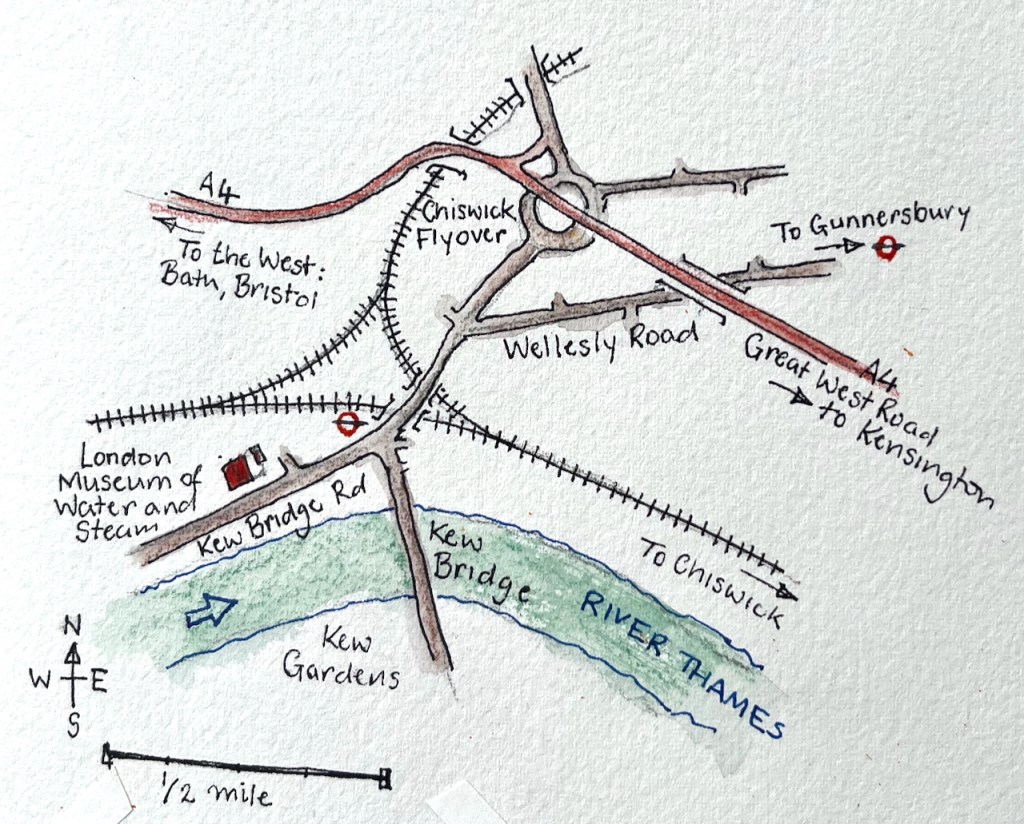 A4
To the West:
Bath, Bristol
Chiswick
Flyover
To Gunnersbury
Wellesly Road
A4
Great West Road
to Kensington
London
Museum of
Water and
Steam
Kew Bridge Rd
Kew
Bridge
To Chiswick
RIVER THAMES
Kew
Gardens
N
W E
S
1/2 mile